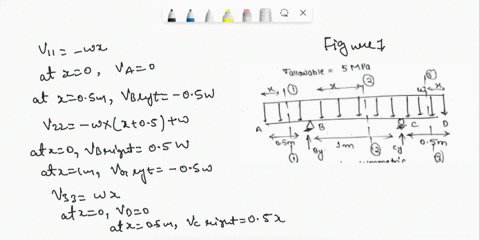 V11 = -wx
at x=0, VA=0
at x=0.5m, VBleyt = -0.5w
V22 = -wx(x+0.5)+w
at x=0, VBright = 0.5w
at x=1m, leyt = -0.5w
V33 = wx
at x=0, VD=0
at x=0.5m, Vc right = 0.5x
Figure 1
τallowable = 5 MPa
x ① x ② ③ x
A B C D
0.5m By 1m Cy 0.5m
① ② ③
symmetric